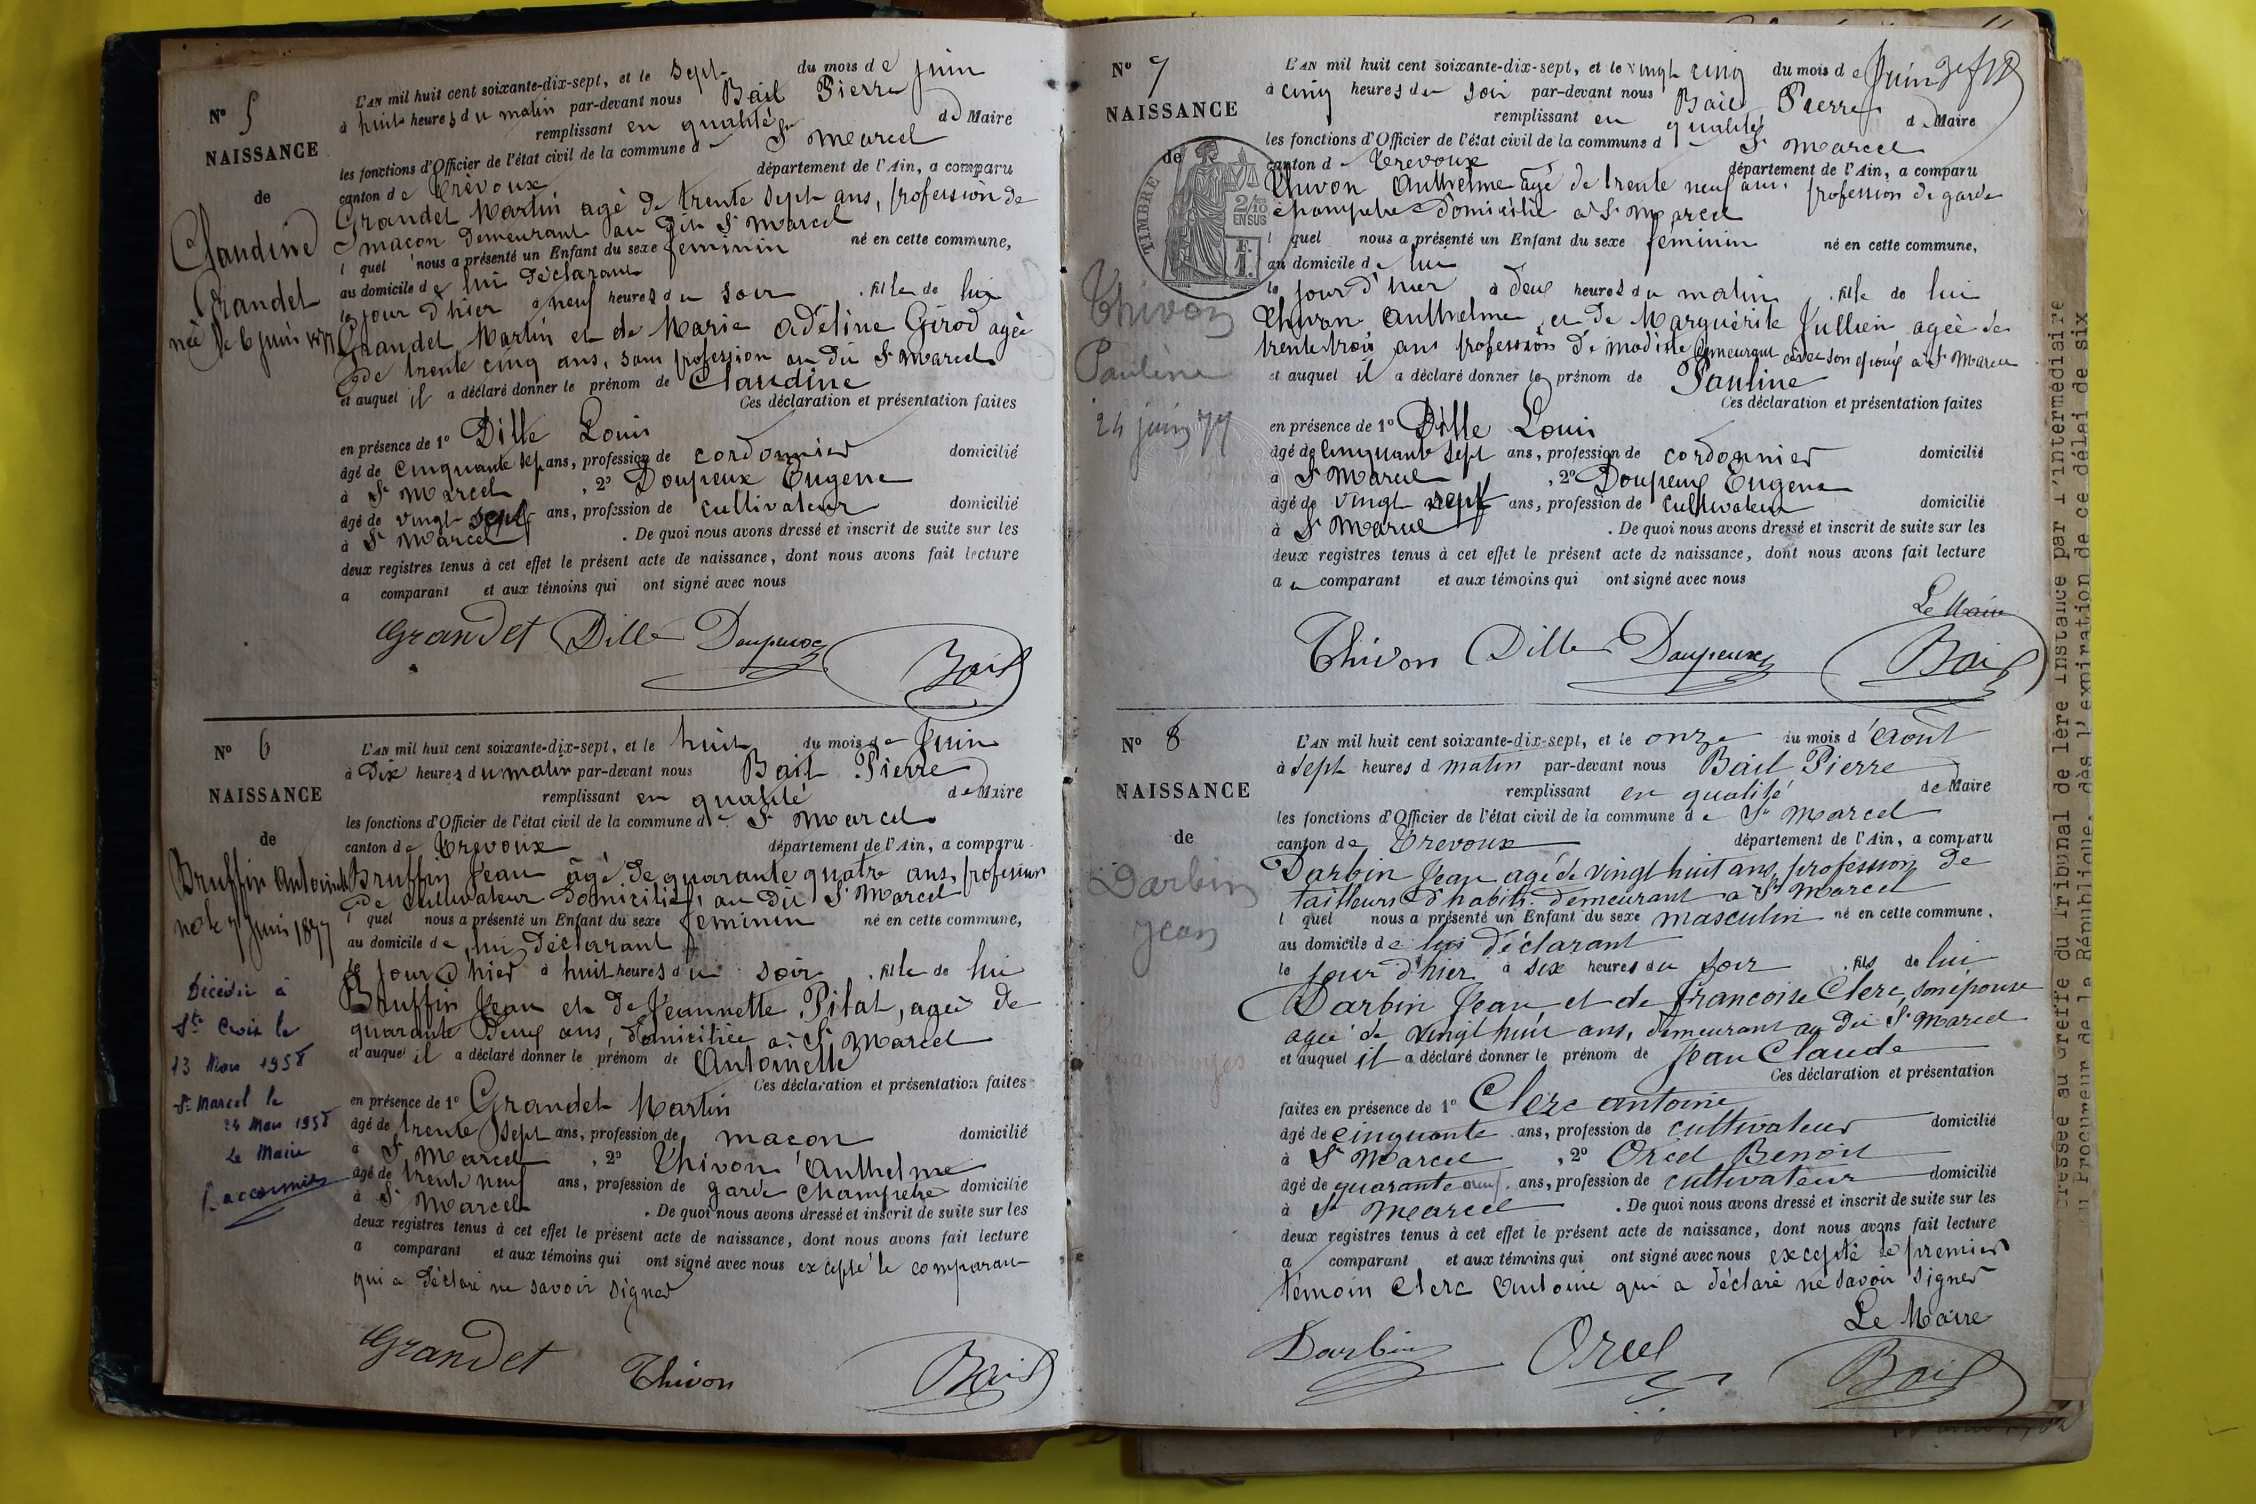 N° 5
NAISSANCE
de
Claudine
Grandet
née le 6 juin 1877
L'AN mil huit cent soixante-dix-sept, et le sept du mois de juin
à huit heures du matin par-devant nous Bail Pierre
remplissant en qualité de Maire
les fonctions d'Officier de l'état civil de la commune de St Marcel
canton de Trévoux département de l'Ain, a comparu
Grandet Martin agé de trente sept ans, profession de
maçon demeurant au dit St Marcel
l quel nous a présenté un Enfant du sexe féminin né en cette commune,
au domicile de lui déclarant
le jour d'hier à neuf heures du soir . fille de lui
Grandet Martin et de Marie Adéline Girod agée
de trente cinq ans, sans profession au dit St Marcel
et auquel il a déclaré donner le prénom de Claudine
Ces déclaration et présentation faites
en présence de 1° Dille Louis
âgé de cinquante sept ans, profession de cordonnier domicilié
à St Marcel , 2° Doupeux Eugene
âgé de vingt sept ans, profession de cultivateur domicilié
à St Marcel . De quoi nous avons dressé et inscrit de suite sur les
deux registres tenus à cet effet le présent acte de naissance, dont nous avons fait lecture
a comparant et aux témoins qui ont signé avec nous
Grandet Dille Doupeux
Bail
N° 6
NAISSANCE
de
Bruffin Antoinette
née le 7 Juin 1877
Décédée à
Ste Croix le
13 Mars 1958
St Marcel le
24 Mars 1958
Le Maire
L'AN mil huit cent soixante-dix-sept, et le huit du mois de Juin
à Dix heures du matin par-devant nous Bail Pierre
remplissant en qualité de Maire
les fonctions d'Officier de l'état civil de la commune de St Marcel
canton de Trevoux département de l'Ain, a comparu
Bruffin Jean âgé de quarante quatre ans, profession
de cultivateur domicilié, au dit St Marcel
l quel nous a présenté un Enfant du sexe feminin né en cette commune,
au domicile de lui déclarant
le jour d'hier à huit heures du soir . fille de lui
Bruffin Jean et de Jeannette Pilat, agée de
quarante deux ans, domiciliée à St Marcel
et auquel il a déclaré donner le prénom de Antoinette
Ces déclaration et présentation faites
en présence de 1° Grandet Martin
âgé de trente sept ans, profession de maçon domicilié
à St Marcel , 2° Thivon Anthelme
âgé de trente neuf ans, profession de garde champetre domicilié
à St Marcel . De quoi nous avons dressé et inscrit de suite sur les
deux registres tenus à cet effet le présent acte de naissance, dont nous avons fait lecture
a comparant et aux témoins qui ont signé avec nous excepté le comparant
qui a déclaré ne savoir signer
Grandet Thivon Bail
N° 7
NAISSANCE
de
TIMBRE
2/10 EN SUS
Thivon
Pauline
24 juin 77
L'AN mil huit cent soixante-dix-sept, et le vingt cinq du mois de Juin
à cinq heures du soir par-devant nous Bail Pierre
remplissant en qualité de Maire
les fonctions d'Officier de l'état civil de la commune d St Marcel
canton de Trevoux département de l'Ain, a comparu
Thivon Anthelme âgé de trente neuf ans, profession de garde
champetre domicilié à St Marcel
l quel nous a présenté un Enfant du sexe féminin né en cette commune,
au domicile de lui
le jour d'hier à deux heures du matin . fille de lui
Thivon Anthelme, et de Marguérite Jullien agée de
trente trois ans profession de modiste demeurant avec son epoux à St Marcel
et auquel il a déclaré donner le prénom de Pauline
Ces déclaration et présentation faites
en présence de 1° Dille Louis
âgé de cinquante sept ans, profession de cordonnier domicilié
à St Marcel , 2° Doupeux Eugene
âgé de vingt sept ans, profession de cultivateur domicilié
à St Marcel . De quoi nous avons dressé et inscrit de suite sur les
deux registres tenus à cet effet le présent acte de naissance, dont nous avons fait lecture
a u comparant et aux témoins qui ont signé avec nous
Le Maire
Thivon Dille Doupeux Bail
N° 8
NAISSANCE
de
Darbin
Jean
L'AN mil huit cent soixante-dix-sept, et le onze du mois d'Août
à sept heures d matin par-devant nous Bail Pierre
remplissant en qualité de Maire
les fonctions d'Officier de l'état civil de la commune de St Marcel
canton de Trevoux département de l'Ain, a comparu
Darbin Jean agé de vingt huit ans, profession de
tailleurs d'habits demeurant à St Marcel
l quel nous a présenté un Enfant du sexe masculin né en cette commune.
au domicile de lui déclarant
le jour d'hier à six heures du soir . fils de lui
Darbin Jean et de francoise Clerc, son épouse
agée de vingt huit ans, demeurant au dit St Marcel
et auquel il a déclaré donner le prénom de Jean Claude
Ces déclaration et présentation
faites en présence de 1° Clerc antoine
âgé de cinquante ans, profession de cultivateur domicilié
à St Marcel , 2° Orcel Benoit
âgé de quarante ans, profession de cultivateur domicilié
à St Marcel . De quoi nous avons dressé et inscrit de suite sur les
deux registres tenus à cet effet le présent acte de naissance, dont nous avons fait lecture
a comparant et aux témoins qui ont signé avec nous excepté le premier
témoin Clerc Antoine qui a déclaré ne savoir signer
Le Maire
Darbin Orcel Bail
ressée au Greffe du Tribunal de 1ère instance par l'intermédiaire
du Procureur de la République, dès l'expiration de ce délai de six